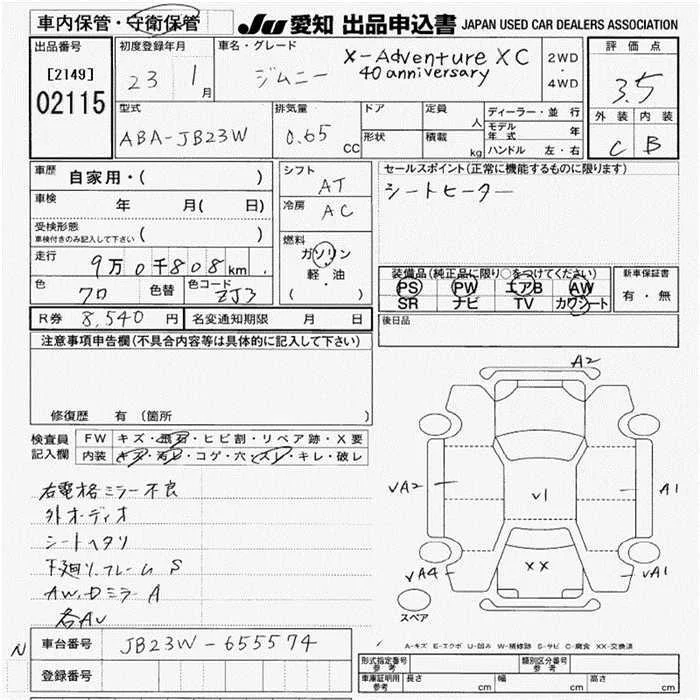 車内保管・守衛保管
JU 愛知 出品申込書 JAPAN USED CAR DEALERS ASSOCIATION
出品番号
[2149]
02115
初度登録年月
23 1月
車名・グレード
ジムニー X-Adventure XC
40 anniversary
2WD
・
4WD
評価点
3.5
外装 内装
C B
型式
ABA-JB23W
排気量
0.65 cc
ドア
形状
定員 人
積載 kg
ディーラー・並行
モデル年式 年
ハンドル 左・右
車歴 自家用・( )
車検 年 月( 日)
受検形態
車検付きのみ記入して下さい ( )
走行 9万0千808km
色 クロ 色替 色コード ZJ3
シフト AT
冷房 AC
燃料
ガソリン
軽・油
( )
セールスポイント(正常に機能するものに限ります)
シートヒーター
装備品(純正品に限り○をつけてください)
PS PW エアB AW
SR ナビ TV カワシート
新車保証書
有・無
後日品
R券 8,540円 名変通知期限 月 日
注意事項申告欄(不具合内容等は具体的に記入して下さい)
修復歴 有 (箇所 )
検査員
記入欄
FW キズ・飛石・ヒビ割・リペア跡・X要
内装 キズ・汚レ・コゲ・穴・スレ・キレ・破レ
右電格ミラー不良
外オーディオ
シートヘタリ
下廻リ、フレーム S
AW、Dミラー A
各AU
A2
VA2
V1
A1
VA4
XX
VA1
スペア
A-キズ E-エクボ U-凹み W-補修跡 S-サビ C-腐食 XX-交換済
N
車台番号 JB23W-655574
登録番号
形式指定番号
参考
類別区分番号
参考
車庫証明用
参考
長さ cm 幅 cm 高さ cm